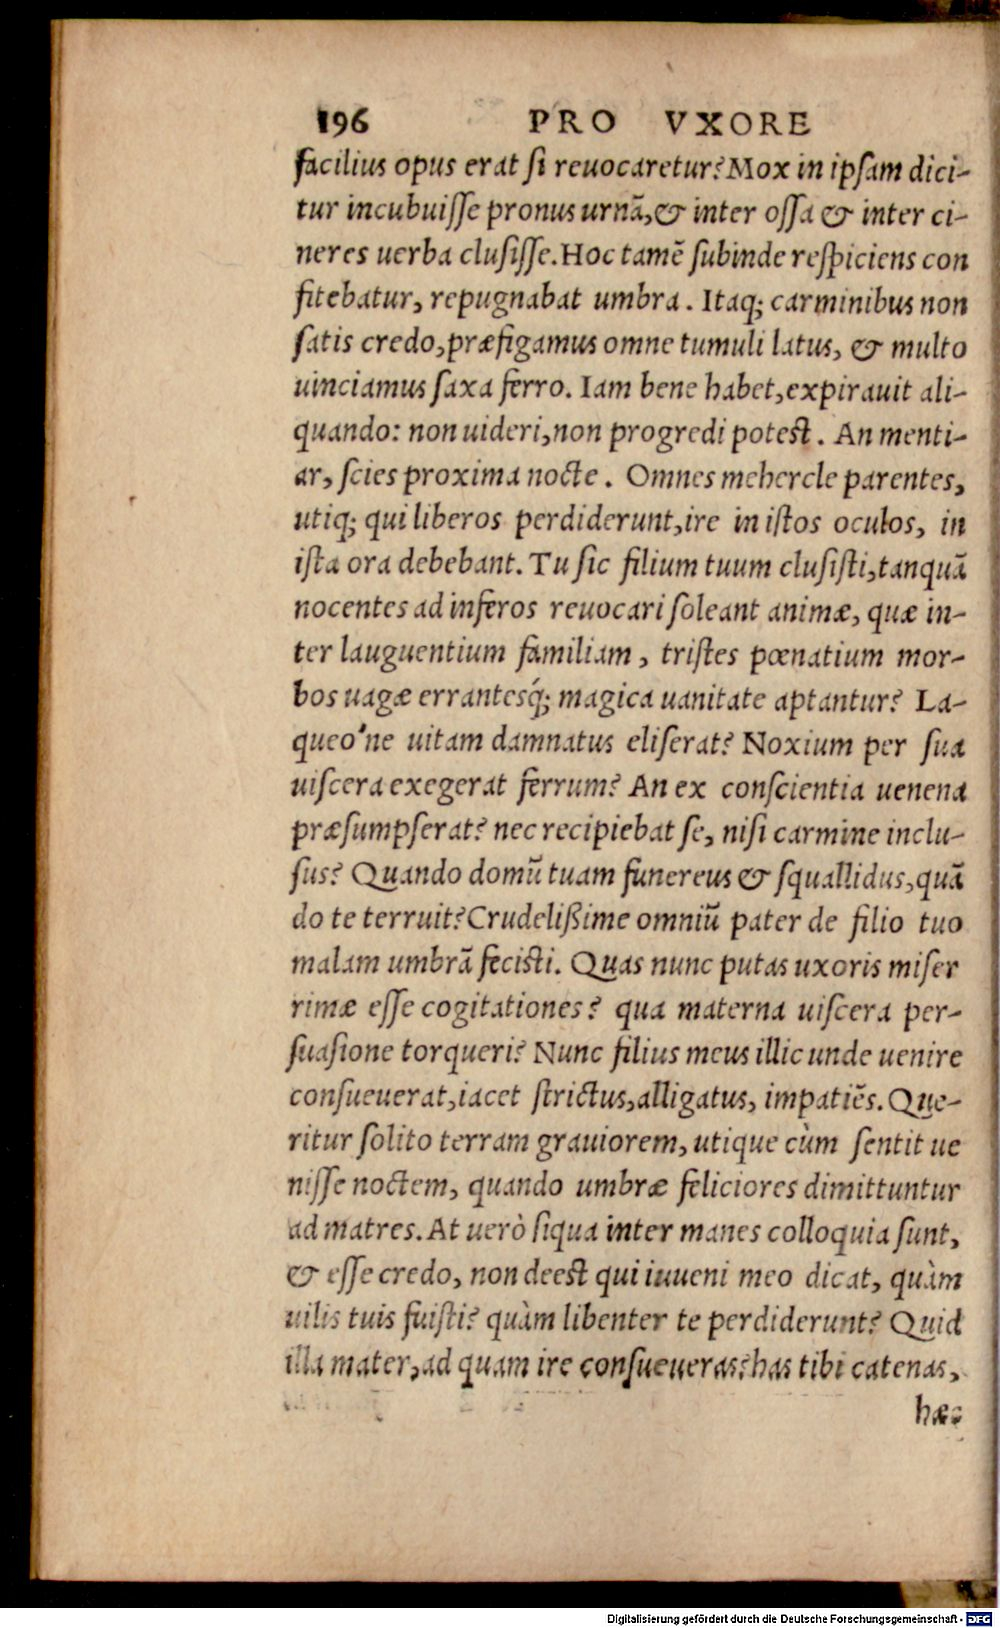 196 PRO VXORE
facilius opus erat si reuocaretur? Mox in ipsam dici-
tur incubuisse pronus urnā, & inter ossa & inter ci-
neres uerba clusisse. Hoc tamē subinde respiciens con
fitebatur, repugnabat umbra. Itaq; carminibus non
satis credo, præfigamus omne tumuli latus, & multo
uinciamus saxa ferro. Iam bene habet, expirauit ali-
quando: non uideri, non progredi potest. An menti-
ar, scies proxima nocte. Omnes mehercle parentes,
utiq; qui liberos perdiderunt, ire in istos oculos, in
ista ora debebant. Tu sic filium tuum clusisti, tanquā
nocentes ad inferos reuocari soleant animæ, quæ in-
ter lauguentium familiam, tristes pœnatium mor-
bos uagæ errantesq́; magica uanitate aptantur? La-
queo'ne uitam damnatus eliserat? Noxium per sua
uiscera exegerat ferrum? An ex conscientia uenena
præsumpserat? nec recipiebat se, nisi carmine inclu-
sus? Quando domū tuam funereus & squallidus, quā
do te terruit? Crudelißime omniū pater de filio tuo
malam umbrā fecisti. Quas nunc putas uxoris miser
rimæ esse cogitationes? qua materna uiscera per-
suasione torqueri? Nunc filius meus illic unde uenire
consueuerat, iacet strictus, alligatus, impatiēs. Que-
ritur solito terram grauiorem, utique cùm sentit ue
nisse noctem, quando umbræ feliciores dimittuntur
ad matres. At uerò siqua inter manes colloquia sunt,
& esse credo, non deest qui iuueni meo dicat, quàm
uilis tuis fuisti? quàm libenter te perdiderunt? Quid
illa mater, ad quam ire consueueras? has tibi catenas,
hæc
Digitalisierung gefördert durch die Deutsche Forschungsgemeinschaft - DFG